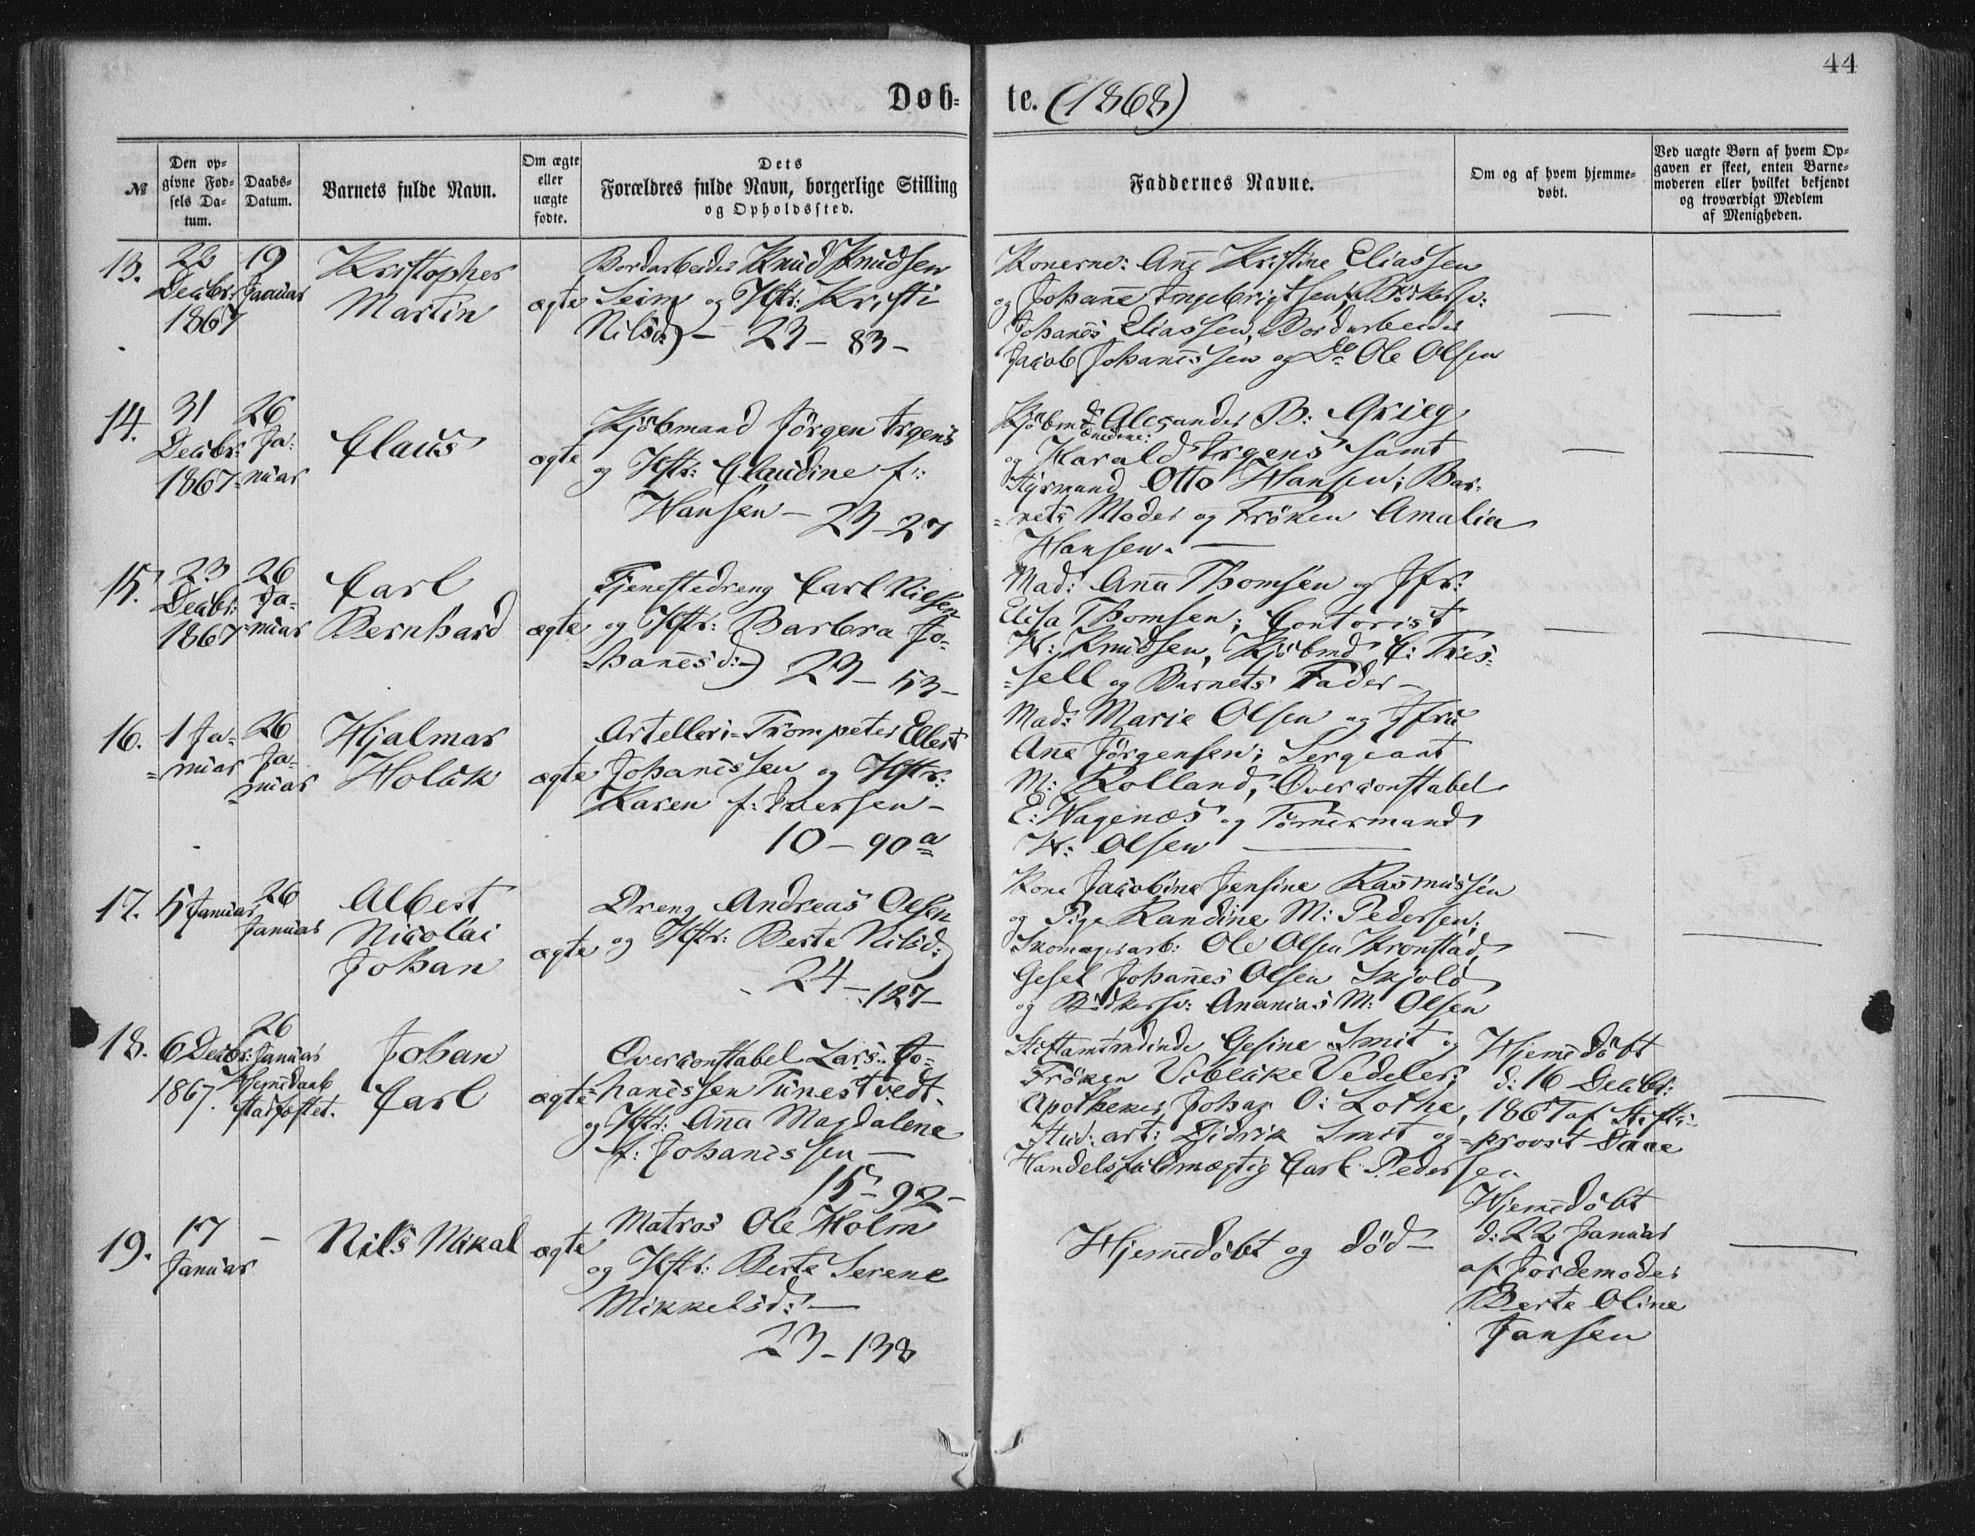 44
Døb-te. (1868)
№
Den opgivne Fødsels Datum.
Daabs-Datum.
Barnets fulde Navn.
Om ægte eller uægte fødte.
Dets Forældres fulde Navn, borgerlige Stilling og Opholdssted.
Faddernes Navne.
Om og af hvem hjemmedøbt.
Ved uægte Børn af hvem Opgaven er skeet, enten Barnemoderen eller hvilket bekjendt og troværdigt Medlem af Menigheden.
13.
22 Decbr: 1867
19 Januar
Kristopher
Martin
ægte
Bordarbeider Knud Knudsen
Seim og Hstr: Kristi
Nilsd:) - 23 - 83 -
Konerne: Ane Kristine Eliassen
og Johane Ingebrigtsen; Bödkersv:
Johanes Eliassen, Bordarbeider
Jacob Johanessen og Do Ole Olsen
14.
31 Decbr: 1867
26 Januar
Claus
ægte
Kjöbmand Jörgen Irgens
og Hstr: Claudine f:
Hansen - 23 - 27
Kjöbmd Alexander B: Grieg
og Harald Irgens samt
Styrmand Otto Hansen; Bar-
-nets Moder og Fröken Amalia
Hansen.
15.
23 Decbr: 1867
26 Januar
Carl
Bernhard
ægte
Tjenestedreng Carl Nilsen
og Hstr: Barbra Jo-
-hanesd:) 23 - 53 -
Mad: Ana Thomsen og Jfr:
Elisa Thomsen; Contorist
H: Knudsen, Kjöbmd C: Tres-
-sell og Barnets Fader -
16.
1 Januar
26 Januar
Hjalmar
Holük
ægte
Artelleri-Trompeter Ellert
Johanessen og Hstr:
Karen f: Iversen -
10 - 90 a
Mad: Marie Olsen og Jfru
Ane Jörgensen; Sergeant
M: Rolland, Overconstabel
E: Hagenæs og Tömermand
H: Olsen
17.
5 Januar
26 Januar
Albert
Nicolai
Johan
ægte
Dreng Andreas Olsen
og Hstr: Berte Nilsd:)
24 - 127 -
Kone Jacobine Jensine Rasmussen
og Pige Randine M: Pedersen;
Skomagerarb: Ole Olsen Kronstad,
Gesel Johanes Olsen Skjold
og Bödkersv: Ananias M: Olsen
18.
6 Decbr: 1867.
26 Januar
Hjemedaab
stadfæstet.
Johan
Carl
ægte
Overconstabel Lars Jo-
hanessen Tünestvedt
og Hstr: Ana Magdalene
f: Johanessen -
15 - 92 -
Stiftamtmdinde Gesine Smit og
Fröken Vibeke Vedeler;
Apotheker Johan O: Lothe,
Stud: art: Didrik Smit og
Handelsfuldmægtig Carl Pedersen.
Hjemedöbt
d: 16 Decbr:
1867 af Stifts-
-provst Daae
19.
17 Januar
-
Nils Mikal
ægte
Matros Ole Holm
og Hstr: Berte Serene
Mikkelsd: -
23 - 138
Hjemedöbt og död -
Hjemedöbt
d: 22 Januar
af Jordemoder
Berte Oline
Jansen